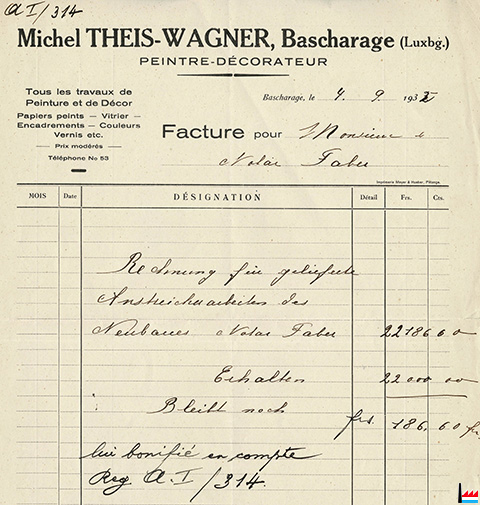 A I/314
Michel THEIS-WAGNER, Bascharage (Luxbg.)
PEINTRE-DÉCORATEUR
Tous les travaux de
Peinture et de Décor
Papiers peints — Vitrier —
Encadrements — Couleurs
Vernis etc.
— Prix modérés —
Téléphone No 53
Bascharage, le 4. 9. 193
Facture pour Monsieur le
Notar Faber
Imprimerie Meyer & Huster, Pétange.
MOIS Date DÉSIGNATION Détail Frs. Cts.
Rechnung für gelieferte
Anstreicherarbeiten des
Neubaues Notar Faber 22186 60
Erhalten 22000 00
Bleibt noch frs. 186.60 frs
lui bonifié en compte
Reg A. I/314.